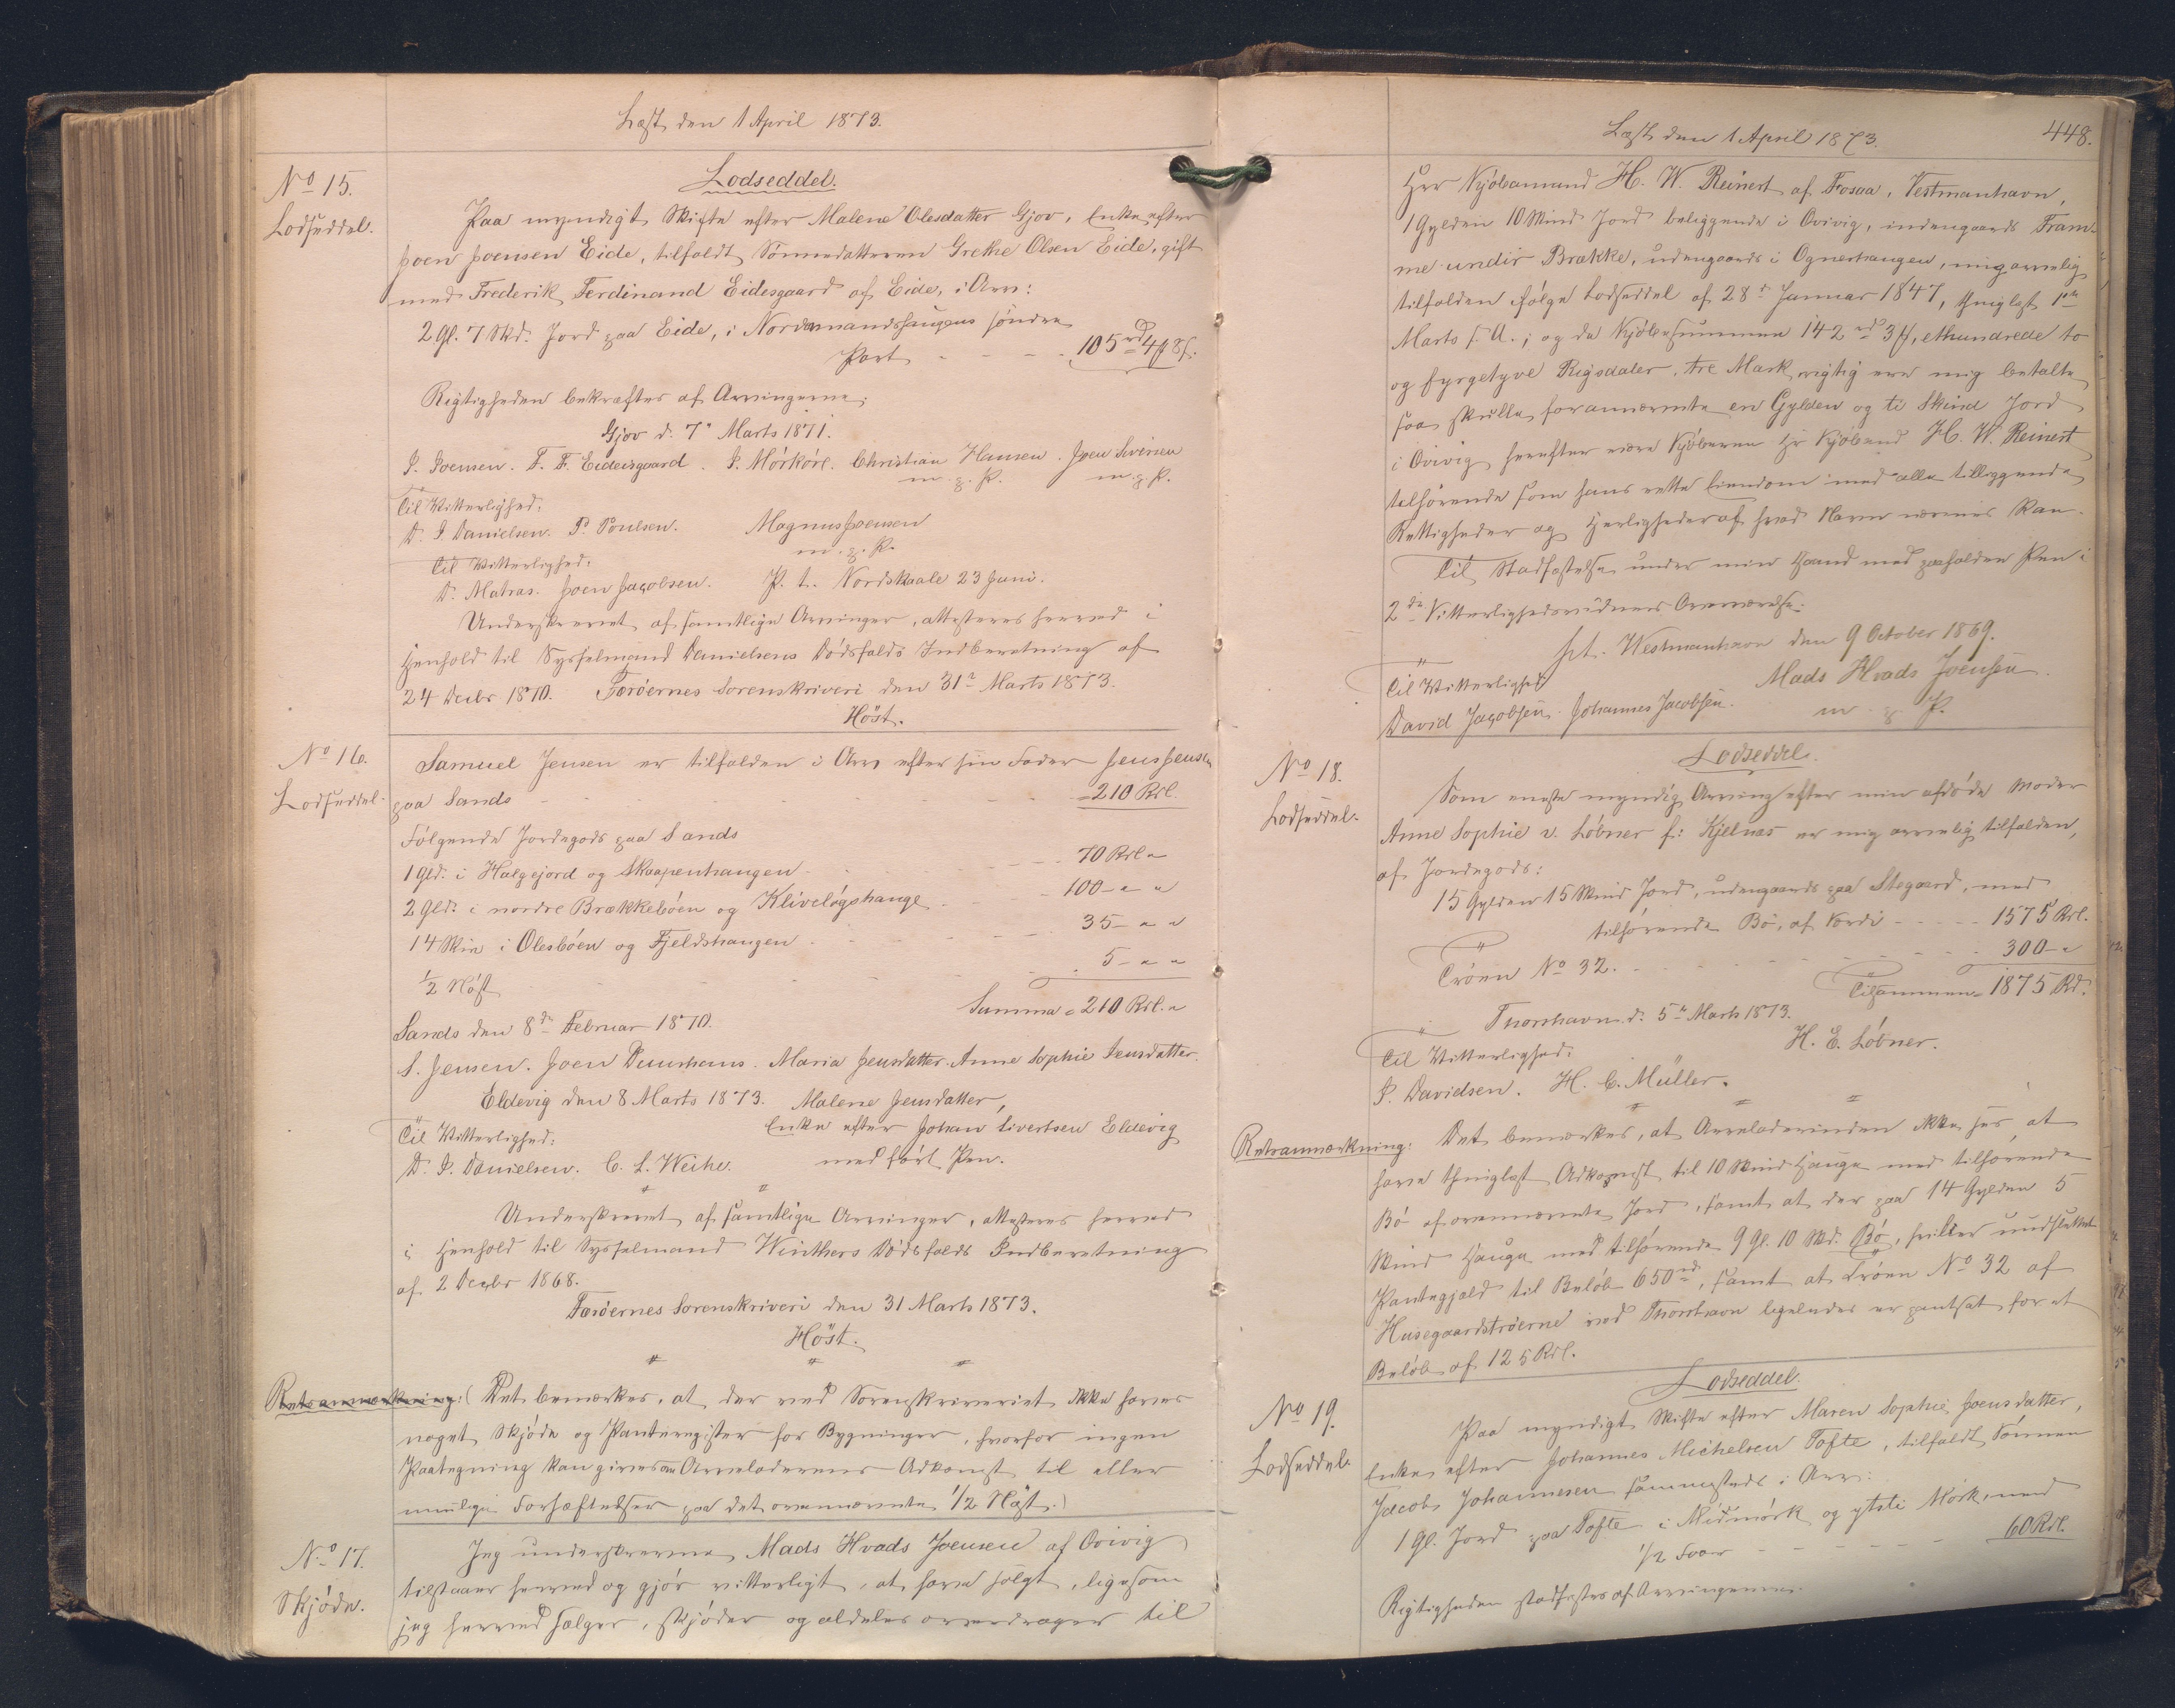 Læst den 1 April 1873.
No 15.
Lodseddel.
Lodseddel.
Paa myndigt Skifte efter Malene Olesdatter Gjov, Enke efter
Joen Joensen Eide, tilfaldt Sønnedatteren Grethe Olsen Eide, gift
med Frederik Ferdinand Eidesgaard af Eide, i Arv:
2 Gl. 7 Skd. Jord paa Eide, i Nordmandshaugens søndre
Part - - - - 105 rd 4 ₰ 8 s.
Rigtigheden bekræftes af Arvingerne,
Gjov d. 7 Marts 1871.
J. Joensen. F. F. Eidesgaard. J. Mørkøre. Christian Hansen. Joen Siversen
m. f. P. m. f. P.
Til Vitterlighed:
D. J. Danielsen. P. Poulsen. Magnus Joensen
m. f. P.
Til Vitterlighed:
D. Matras. Joen Jacobsen. P. t. Nordskaale 23 Juni.
Underskrevet af samtlige Arvinger, attesteres herved i
Henhold til Sysselmand Danielsens Dødsfalds Indberetning af
24 Decbr 1870. Færøernes Sorenskriveri den 31 Marts 1873.
Höst.
No 16.
Lodseddel.
Samuel Jensen er tilfalden i Arv efter sin Fader Jens Jensen
paa Sands - - - = 210 Rdl.
Følgende Jordegods paa Sands
1 Gld. i Halgejord og Skaapenhaugen - - - 70 Rdl "
2 Gld. i nordre Brækkebøen og Kliveløgshauge - - 100 - " "
14 Skin i Olesbøen og Fjeldshaugen - - - 35 - " "
1/2 Nøst - - - 5 - " "
Summa = 210 Rdl. "
Sands den 8de Februar 1870.
S. Jensen. Joen Maria Jensdatter. Anne Sophie Jensdatter.
Eldevig den 8 Marts 1873. Malene Jensdatter,
Enke efter Johan Sivertsen Eldevig
med ført Pen.
Til Vitterlighed:
D. J. Danielsen. C. L. Weihe.
Underskrevet af samtlige Arvinger, attesteres herved
i Henhold til Sysselmand Winthers Dødsfalds Indberetning
af 2 Decbr 1868.
Færøernes Sorenskriveri den 31 Marts 1873.
Höst.
Retsanmærkning: (Det bemærkes, at der ved Sorenskriveriet ikke haves
noget Skjøde og Panteregister for Bygninger, hvorfor ingen
Paategning kan gives om Arveladerens Adkomst til eller
mulige Forhæftelser paa det ovennævnte 1/2 Nøst.)
No 17.
Skjøde.
Jeg underskrevne Mads Hvads Joensen af Qvivig
tilstaaer herved og gjør vitterligt, at have solgt, ligesom
jeg herved sælger, skjøder og aldeles overdrager til
Læst den 1 April 1873.
448.
Herr Kjøbmand H. W. Reinert af Fosaa, Vestmanhavn,
1 Gylden 10 Skind Jord beliggende i Qvivig, indengaards Fram-
me undir Brække, udengaards i Ognerhaugen, mig arvelig
tilfalden ifølge Lodseddel af 28 Januar 1847, thinglæst 1ste
Marts s. A.; og da Kjøbesummen 142 rd 3 ₰, ethundrede to
og fyrgetyve Rigsdaler, tre Mark, rigtig ere mig betalte
saa skulle forannævnte en Gylden og ti Skind Jord
i Qvivig herefter være Kjøberen Hr Kjøbmd H. W. Reinert
tilhørende som hans rette Eiendom med alle tilliggende
Rettigheder og Herligheder af hvad Navn nævnes kan.
Til Stadfæstelse under min Haand med paaholden Pen i
2de Vitterlighedsvidners Overværelse.
p.t. Westmanhavn den 9 October 1869.
Mads Hvads Joensen.
m. f. P.
Til Vitterlighed:
David Jacobsen. Johannes Jacobsen.
No 18.
Lodseddel.
Lodseddel.
Som eneste myndig Arving efter min afdøde Moder
Anne Sophie v. Løbner f: Kjelnæs er mig arvelig tilfalden,
af Jordegods:
15 Gylden 15 Skind Jord, udengaards paa Stegaard, med
tilhørende Bø, af Værdi - - - 1575 Rdl.
Trøen No 32. - - - 300 - "
Tilsammen = 1875 Rd.
Thorshavn d. 5 Marts 1873.
H. E. Løbner.
Til Vitterlighed:
J. Davidsen. H. C. Müller.
Retsanmærkning: Det bemærkes, at Arveladerinden ikke ses at
have thinglæst Adkomst til 10 Skind Hauge med tilhørende
Bø af ovennævnte Jord, samt at der paa 14 Gylden 5
Skind Hauge med tilhørende 9 Gl. 10 Skd. Bø, hviler uudslettet
Pantegjæld til Beløb 650 rd, samt at Trøen No 32 af
Husegaardstrøerne ved Thorshavn ligeledes er pantsat for et
Beløb af 125 Rdl.
No 19.
Lodseddel.
Lodseddel.
Paa myndigt Skifte efter Maren Sophie Joensdatter,
Enke efter Johannes Michelsen Tofte, tilfaldt Sønnen
Jacob Johannesen sammesteds i Arv:
1 Gl. Jord paa Tofte i Midmørk og ytsti Mørk, med
1/2 Foer - - - 60 Rdl.
Rigtigheden stadfæstes af Arvingerne.